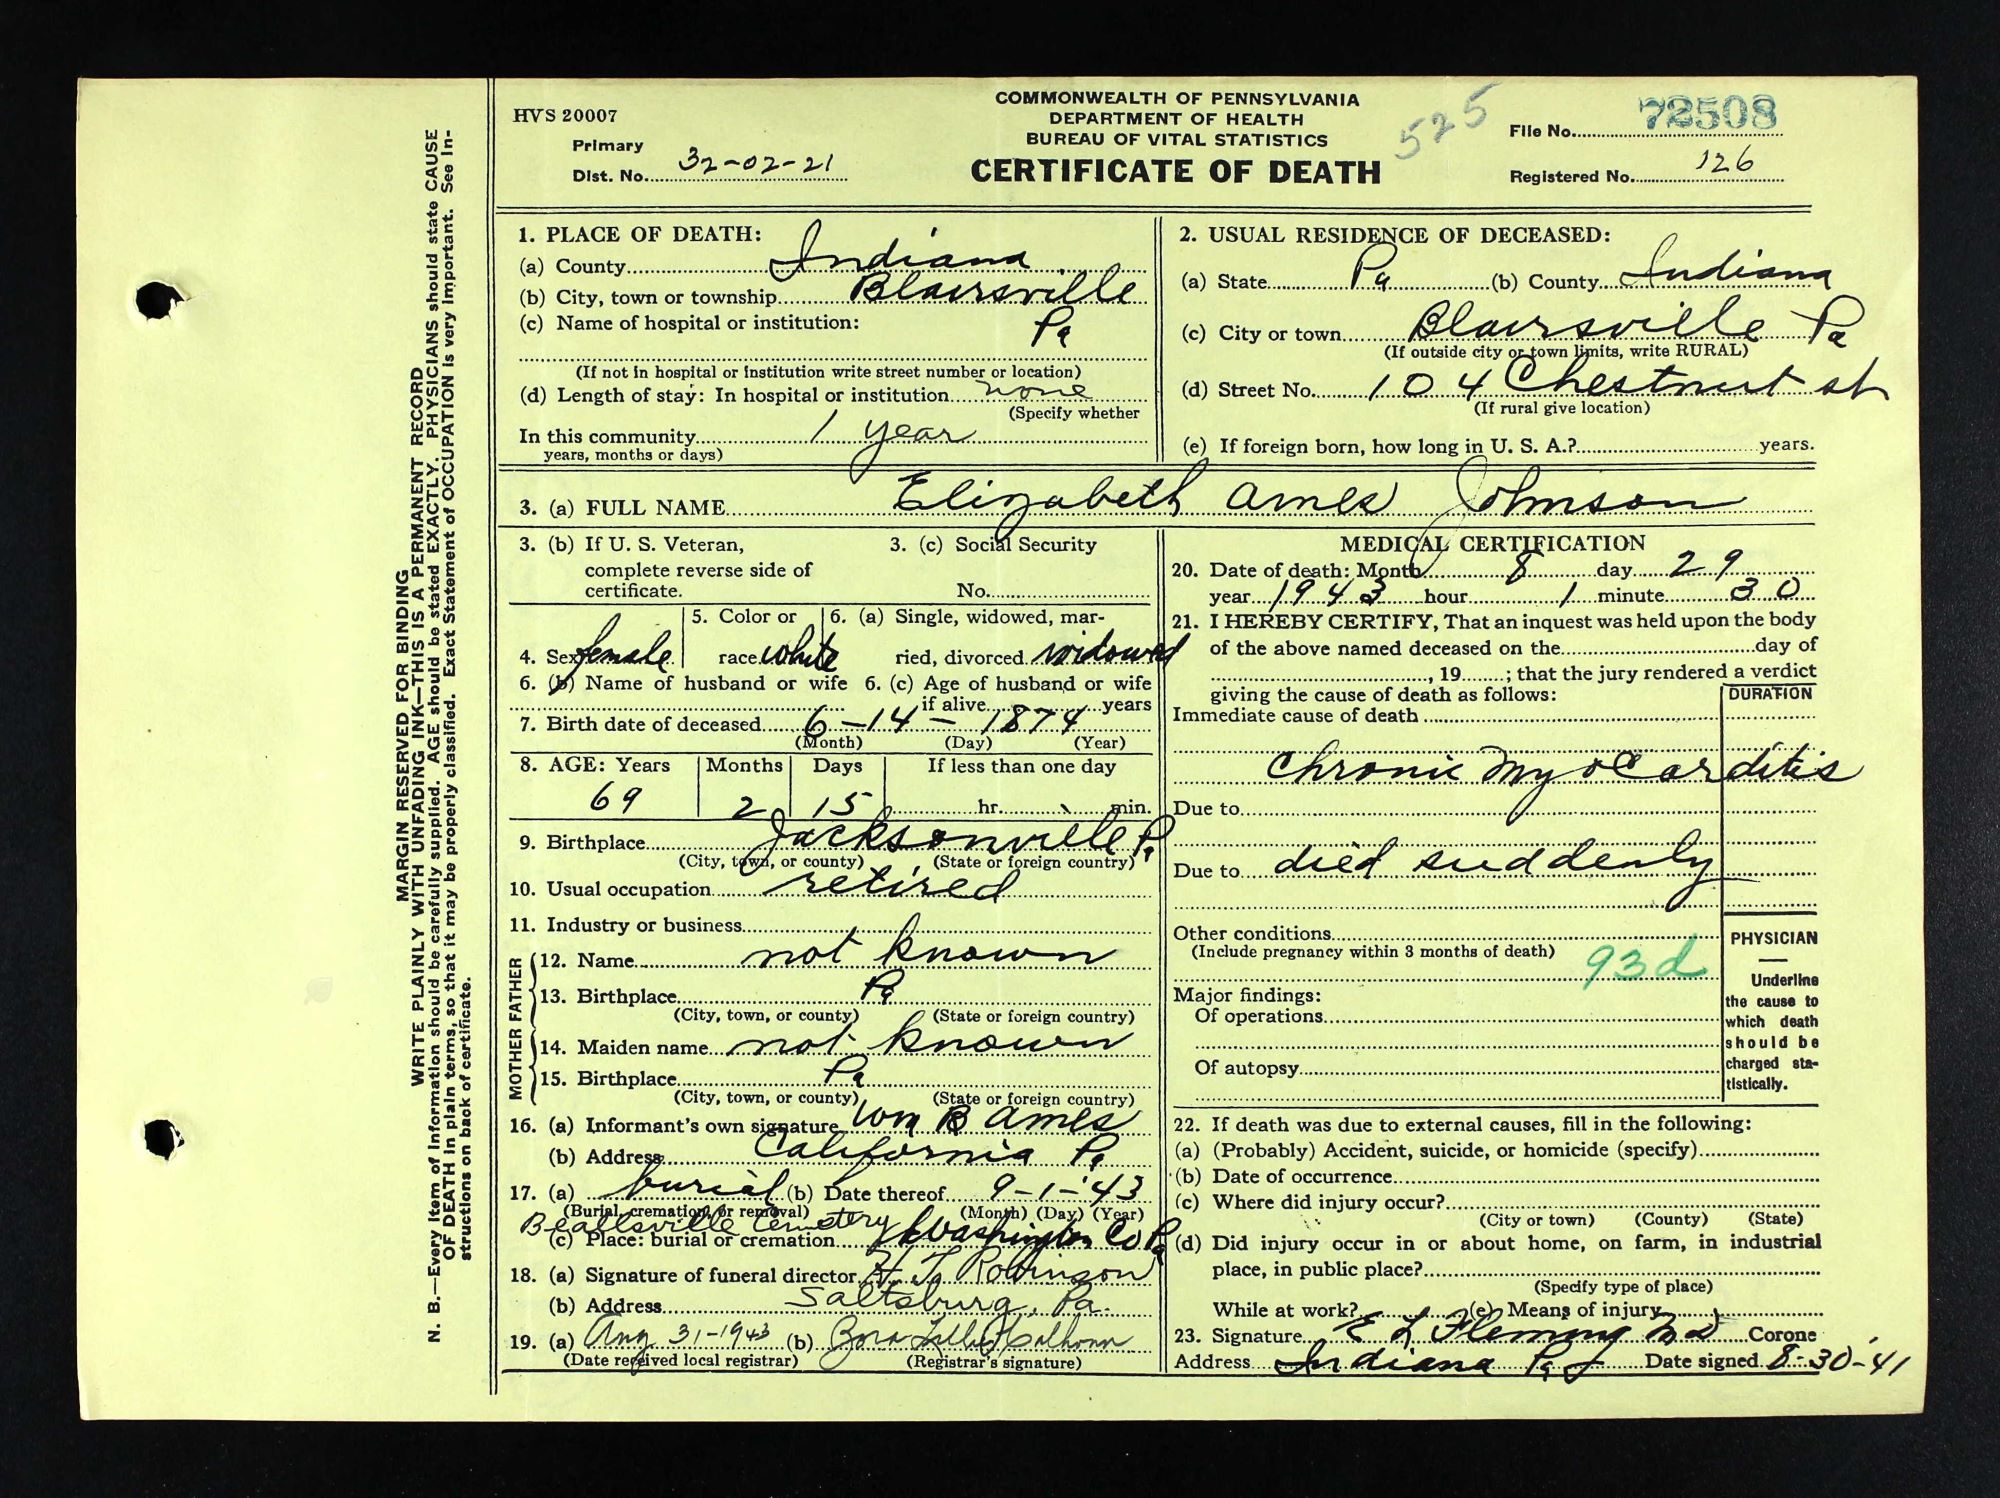 HVS 20007
COMMONWEALTH OF PENNSYLVANIA
DEPARTMENT OF HEALTH
BUREAU OF VITAL STATISTICS
CERTIFICATE OF DEATH
525
Primary
Dist. No. 32-02-21
File No. 72508
Registered No. 126
MARGIN RESERVED FOR BINDING
WRITE PLAINLY WITH UNFADING INK—THIS IS A PERMANENT RECORD
N. B.—Every item of information should be carefully supplied. AGE should be stated EXACTLY. PHYSICIANS should state CAUSE
OF DEATH in plain terms, so that it may be properly classified. Exact Statement of OCCUPATION is very important. See in-
structions on back of certificate.
1. PLACE OF DEATH:
(a) County Indiana
(b) City, town or township Blairsville
(c) Name of hospital or institution: Pa
(If not in hospital or institution write street number or location)
(d) Length of stay: In hospital or institution none
(Specify whether
In this community 1 year
years, months or days)
2. USUAL RESIDENCE OF DECEASED:
(a) State Pa (b) County Indiana
(c) City or town Blairsville Pa
(If outside city or town limits, write RURAL)
(d) Street No. 104 Chestnut st
(If rural give location)
(e) If foreign born, how long in U. S. A.? years.
3. (a) FULL NAME Elizabeth Ames Johnson
3. (b) If U. S. Veteran, 3. (c) Social Security
complete reverse side of
certificate. No.
5. Color or 6. (a) Single, widowed, mar-
4. Sex female race white ried, divorced widowed
6. (b) Name of husband or wife 6. (c) Age of husband or wife
if alive years
7. Birth date of deceased 6-14-1874
(Month) (Day) (Year)
8. AGE: Years Months Days If less than one day
69 2 15 hr. min.
9. Birthplace Jacksonville Pa
(City, town, or county) (State or foreign country)
10. Usual occupation retired
11. Industry or business
FATHER
12. Name not known
13. Birthplace Pa
(City, town, or county) (State or foreign country)
MOTHER
14. Maiden name not known
15. Birthplace Pa
(City, town, or county) (State or foreign country)
16. (a) Informant's own signature Wm B Ames
(b) Address California Pa
17. (a) burial (b) Date thereof 9-1-'43
(Burial, cremation, or removal) (Month) (Day) (Year)
Beallsville Cemetery Washington Co Pa
(c) Place: burial or cremation
18. (a) Signature of funeral director H. T. Robinson
(b) Address Saltsburg, Pa.
19. (a) Aug 31-1943 (b) Zora Calhoun
(Date received local registrar) (Registrar's signature)
MEDICAL CERTIFICATION
20. Date of death: Month 8 day 29
year 1943 hour 1 minute 30
21. I HEREBY CERTIFY, That an inquest was held upon the body
of the above named deceased on the day of
, 19 ; that the jury rendered a verdict
giving the cause of death as follows: DURATION
Immediate cause of death
Chronic Myocarditis
Due to
Due to died suddenly
Other conditions
(Include pregnancy within 3 months of death) 93d
Major findings:
Of operations
Of autopsy
PHYSICIAN
Underline
the cause to
which death
should be
charged sta-
tistically.
22. If death was due to external causes, fill in the following:
(a) (Probably) Accident, suicide, or homicide (specify)
(b) Date of occurrence
(c) Where did injury occur?
(City or town) (County) (State)
(d) Did injury occur in or about home, on farm, in industrial
place, in public place?
(Specify type of place)
While at work? (e) Means of injury
23. Signature E L Fleming MD Corone
Address Indiana Pa Date signed 8-30-41